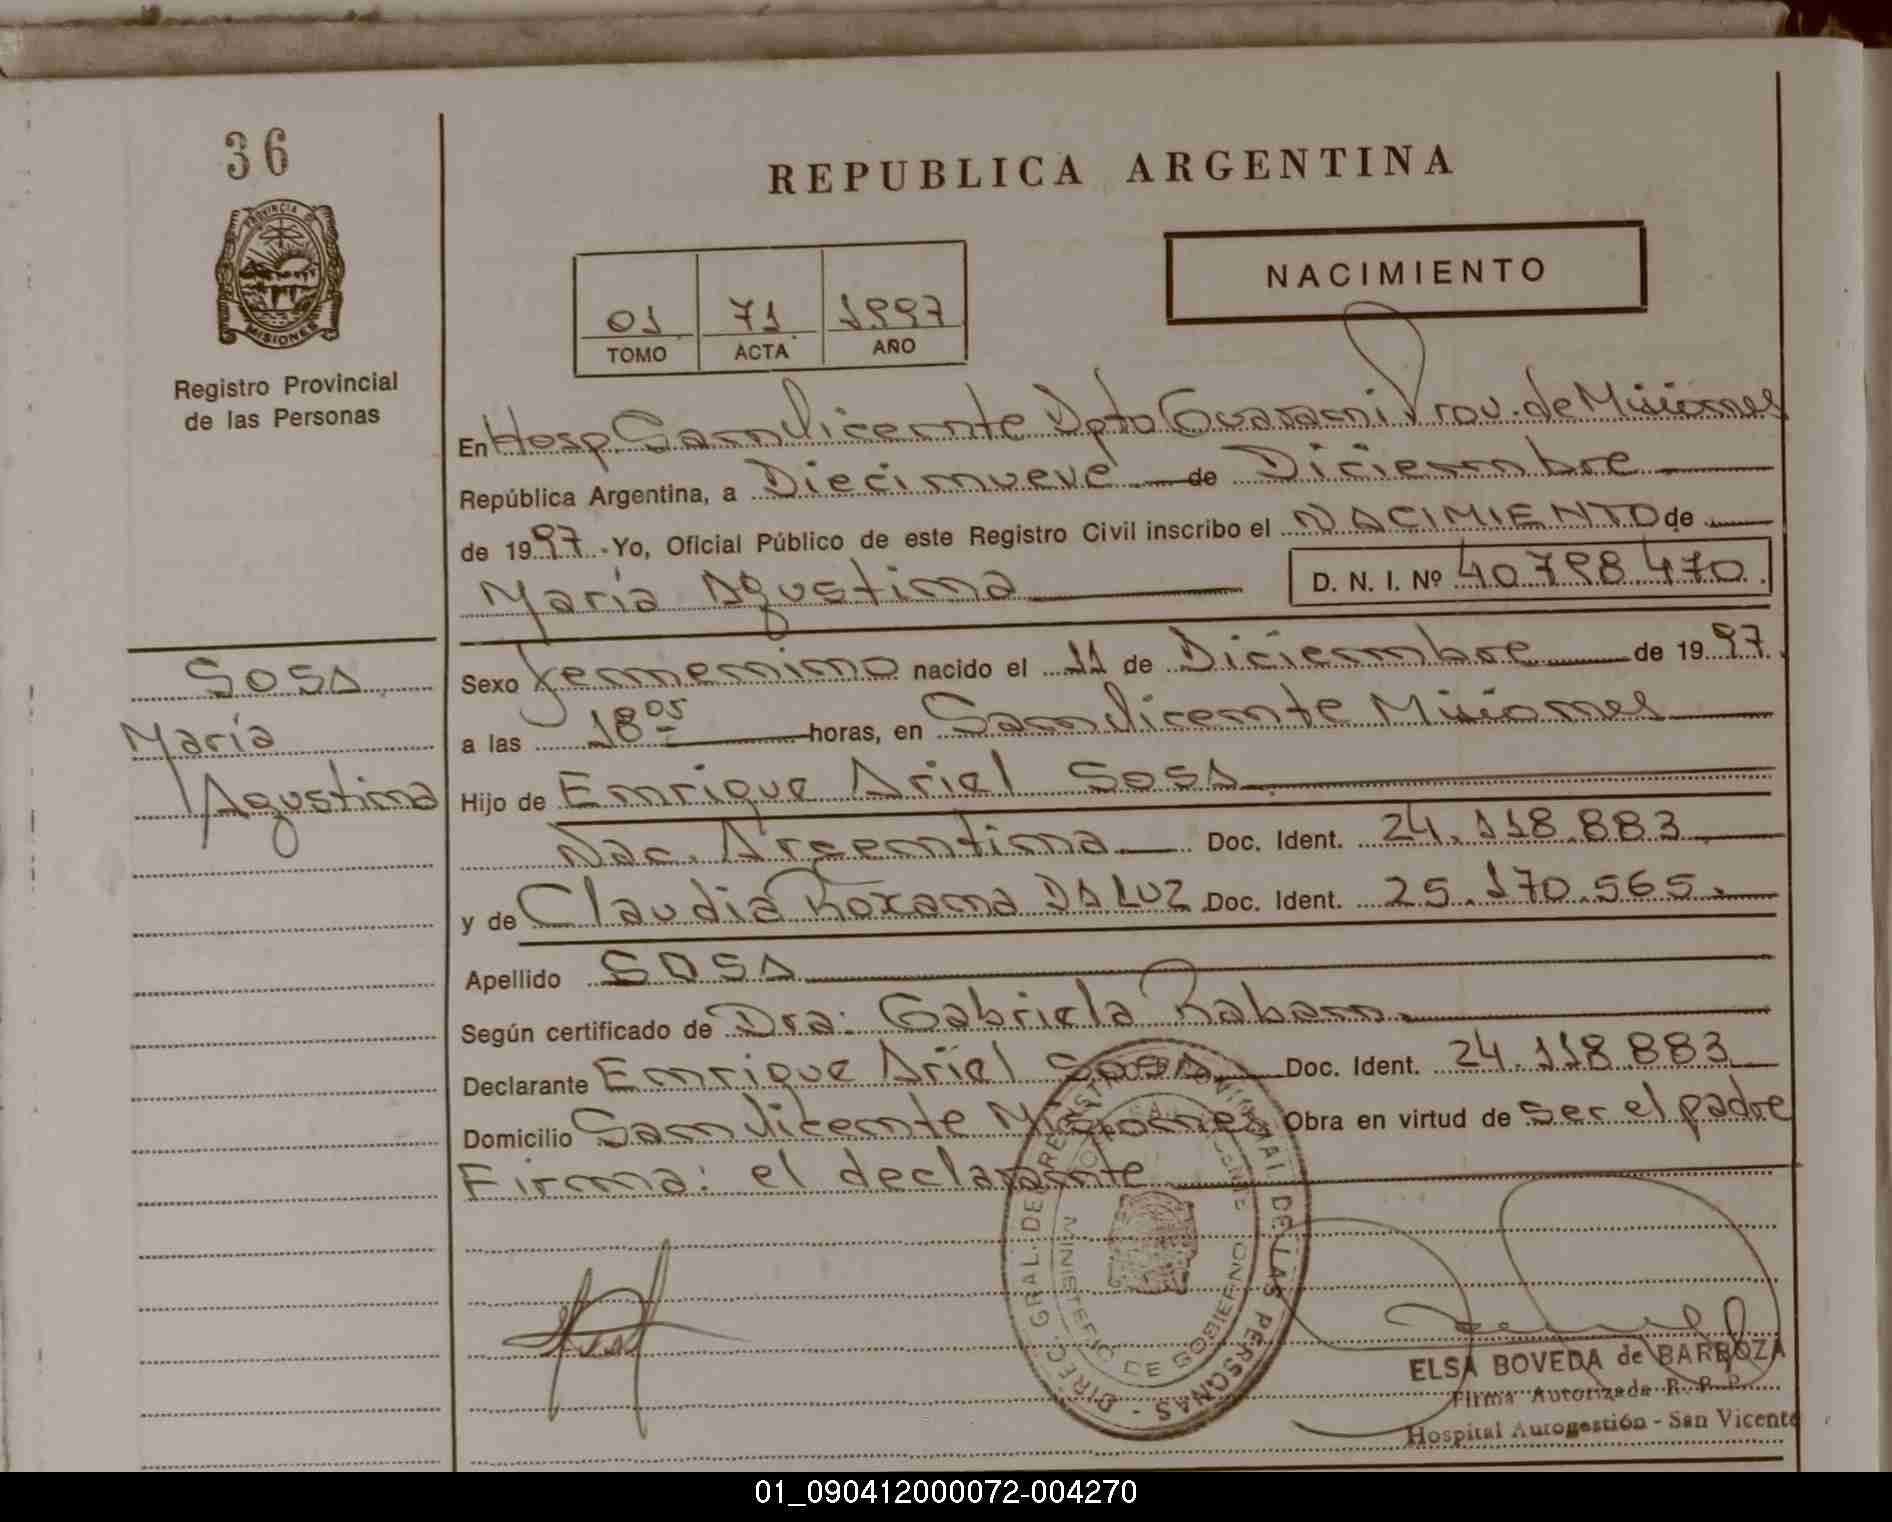 36
PROVINCIA DE
MISIONES
Registro Provincial
de las Personas
REPUBLICA ARGENTINA
NACIMIENTO
01 71 1997
TOMO ACTA AÑO
En Hosp. San Vicente Dpto Guarani Prov. de Misiones
República Argentina, a Diecinueve de Diciembre
de 1997. Yo, Oficial Público de este Registro Civil inscribo el NACIMIENTO de
María Agustina D. N. I. Nº 40798470
SOSA
María
Agustina
Sexo femenino nacido el 11 de Diciembre de 1997
a las 18 05 horas, en San Vicente Misiones
Hijo de Enrique Ariel SOSA
Nac. Argentina Doc. Ident. 24.118.883
y de Claudia Roxana DA LUZ Doc. Ident. 25.170.565.
Apellido SOSA
Según certificado de Dra: Gabriela Raban
Declarante Enrique Ariel SOSA Doc. Ident. 24.118.883
Domicilio San Vicente Misiones Obra en virtud de ser el padre
Firma: el declarante
DIREC. GRAL. DEL REGISTRO PROVINCIAL DE LAS PERSONAS
MINISTERIO DE GOBIERNO
ELSA BOVEDA de BARBOZA
Firma Autorizada R. P. P.
Hospital Autogestión - San Vicente
01_090412000072-004270